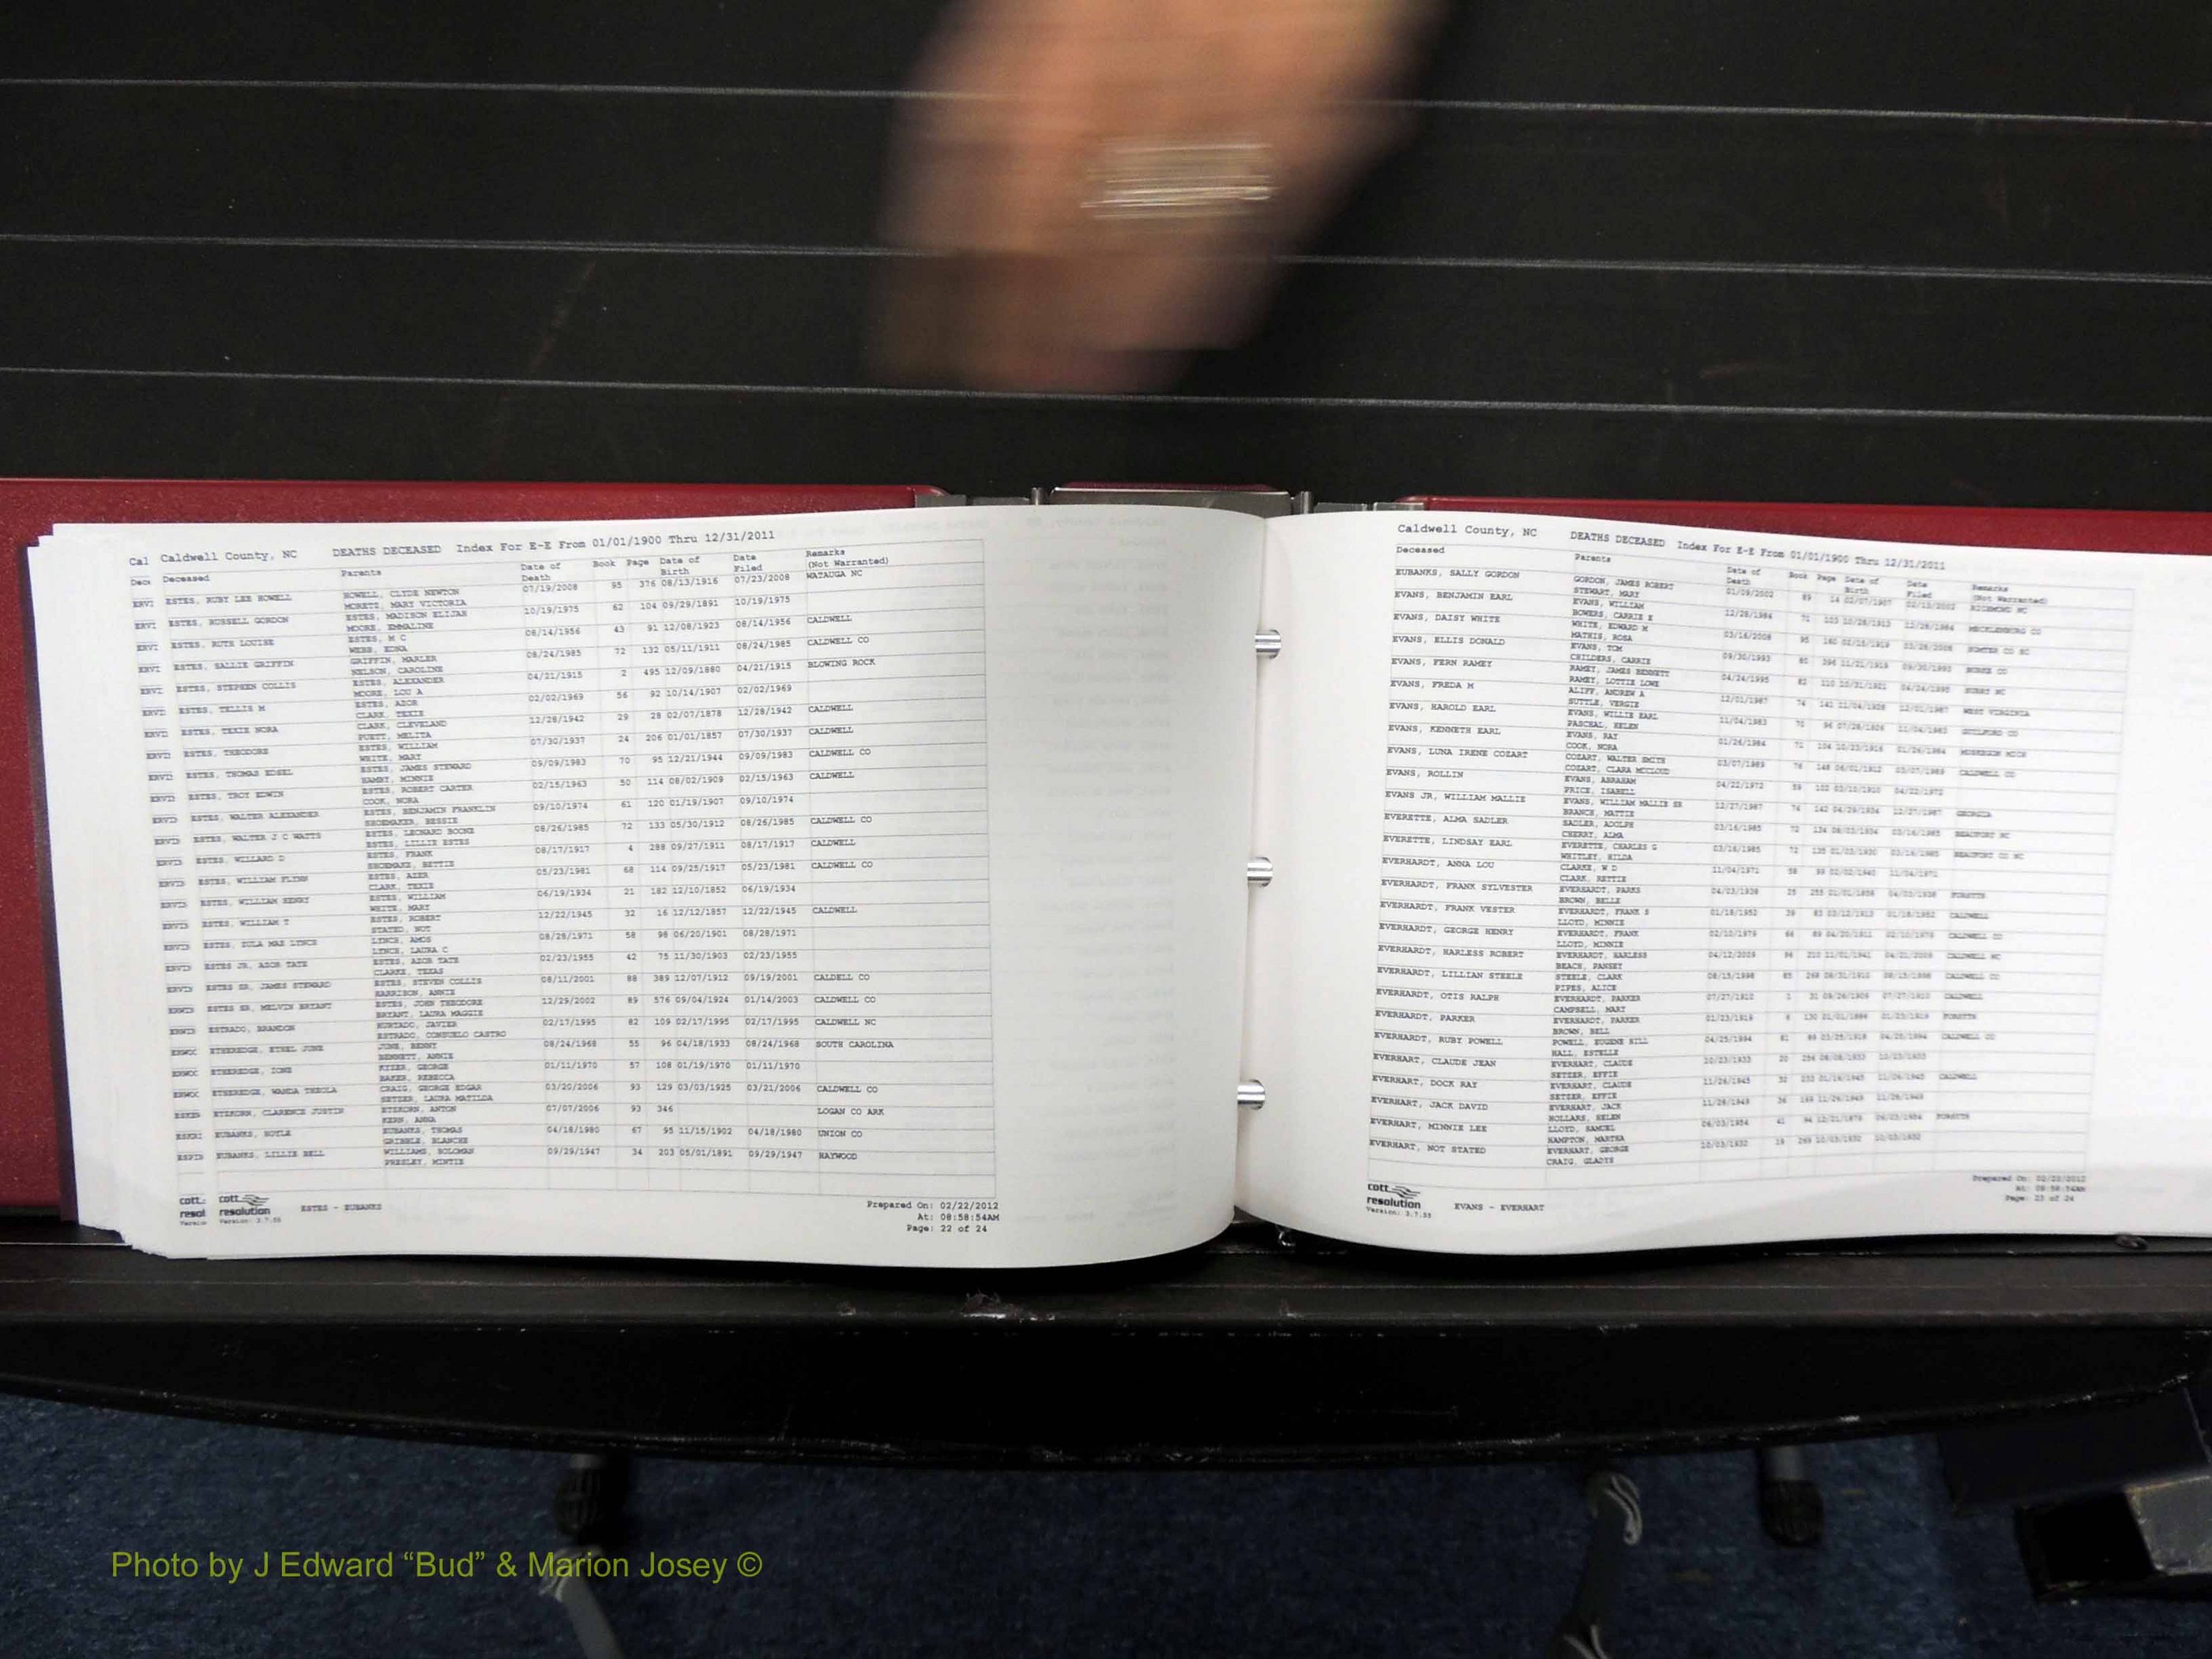 Cal Caldwell County, NC DEATHS DECEASED Index For E-E From 01/01/1900 Thru 12/31/2011
Dece Deceased Parents Date of Death Book Page Date of Birth Date Filed Remarks (Not Warranted)
ERVI ESTES, RUBY LEE HOWELL HOWELL, CLYDE NEWTON 07/19/2008 95 376 08/13/1916 07/23/2008 WATAUGA NC
MORETZ, MARY VICTORIA
ERVI ESTES, RUSSELL GORDON ESTES, MADISON ELIJAH 10/19/1975 62 104 09/29/1891 10/19/1975
MOORE, EMMALINE
ERVI ESTES, RUTH LOUISE ESTES, M C 08/14/1956 43 91 12/08/1923 08/14/1956 CALDWELL
WEBB, EDNA
ERVI ESTES, SALLIE GRIFFIN GRIFFIN, MARLER 08/24/1985 72 132 05/11/1911 08/24/1985 CALDWELL CO
NELSON, CAROLINE
ERVI ESTES, STEPHEN COLLIS ESTES, ALEXANDER 04/21/1915 2 495 12/09/1880 04/21/1915 BLOWING ROCK
MOORE, LOU A
ESTES, TELLIS M ESTES, AZOR 02/02/1969 56 92 10/14/1907 02/02/1969
CLARK, TEXIE
ESTES, TEXIE NORA CLARK, CLEVELAND 12/28/1942 29 28 02/07/1878 12/28/1942 CALDWELL
PUETT, MELITA
ESTES, THEODORE ESTES, WILLIAM 07/30/1937 24 206 01/01/1857 07/30/1937 CALDWELL
WHITE, MARY
ESTES, THOMAS EDSEL ESTES, JAMES STEWARD 09/09/1983 70 95 12/21/1944 09/09/1983 CALDWELL CO
HAMBY, MINNIE
ESTES, TROY EDWIN ESTES, ROBERT CARTER 02/15/1963 50 114 08/02/1909 02/15/1963 CALDWELL
COOK, NORA
ESTES, WALTER ALEXANDER ESTES, BENJAMIN FRANKLIN 09/10/1974 61 120 01/19/1907 09/10/1974
SHOEMAKER, BESSIE
ESTES, WALTER J C WATTS ESTES, LEONARD BOONE 08/26/1985 72 133 05/30/1912 08/26/1985 CALDWELL CO
ESTES, LILLIE ESTES
ESTES, WILLARD D ESTES, FRANK 08/17/1917 4 288 09/27/1911 08/17/1917 CALDWELL
SHOEMAKE, BETTIE
ESTES, WILLIAM FLYNN ESTES, AZER 05/23/1981 68 114 09/25/1917 05/23/1981 CALDWELL CO
CLARK, TEXIE
ESTES, WILLIAM HENRY ESTES, WILLIAM 06/19/1934 21 182 12/10/1852 06/19/1934
WHITE, MARY
ESTES, WILLIAM T ESTES, ROBERT 12/22/1945 32 16 12/12/1857 12/22/1945 CALDWELL
STATED, NOT
ESTES, ZOLA MAE LYNCH LYNCH, AMOS 08/28/1971 58 98 06/20/1901 08/28/1971
LYNCH, LAURA C
ESTES JR, AZOR TATE ESTES, AZOR TATE 02/23/1955 42 75 11/30/1903 02/23/1955
CLARKE, TEXAS
ESTES SR, JAMES STEWARD ESTES, STEVEN COLLIS 08/11/2001 88 389 12/07/1912 09/19/2001 CALDELL CO
HARRISON, ANNIE
ESTES SR, MELVIN BRYANT ESTES, JOHN THEODORE 12/29/2002 89 576 09/04/1924 01/14/2003 CALDWELL CO
BRYANT, LAURA MAGGIE
ESTRADO, BRANDON HURTADO, JAVIER 02/17/1995 82 109 02/17/1995 02/17/1995 CALDWELL NC
ESTRADO, CONSUELO CASTRO
ETHEREDGE, ETHEL JUNE JUNE, BENNY 08/24/1968 55 96 04/18/1933 08/24/1968 SOUTH CAROLINA
BENNETT, ANNIE
ETHEREDGE, IONE KYZER, GEORGE 01/11/1970 57 108 01/19/1970 01/11/1970
BAKER, REBECCA
ETHEREDGE, WANDA THEOLA CRAIG, GEORGE EDGAR 03/20/2006 93 129 03/03/1925 03/21/2006 CALDWELL CO
SETZER, LAURA MATILDA
ETZKORN, CLARENCE JUSTIN ETZKORN, ANTON 07/07/2006 93 346 LOGAN CO ARK
KERN, ANNA
EUBANKS, HOYLE EUBANKS, THOMAS 04/18/1980 67 95 11/15/1902 04/18/1980 UNION CO
GRIBBLE, BLANCHE
EUBANKS, LILLIE BELL WILLIAMS, SOLOMAN 09/29/1947 34 203 05/01/1891 09/29/1947 HAYWOOD
PRESLEY, MINTIE
cott: cott
resol resolution ESTES - EUBANKS
Version: 3.7.55
Prepared On: 02/22/2012
At: 08:58:54AM
Page: 22 of 24
Caldwell County, NC DEATHS DECEASED Index For E-E From 01/01/1900 Thru 12/31/2011
Deceased Parents Date of Death Book Page Date of Birth Date Filed Remarks (Not Warranted)
EUBANKS, SALLY GORDON GORDON, JAMES ROBERT 01/09/2002 89
STEWART, MARY
EVANS, BENJAMIN EARL EVANS, WILLIAM 12/28/1984 71 MECKLENBURG CO
BOWERS, CARRIE E
EVANS, DAISY WHITE WHITE, EDWARD M 03/16/2008 95 SUMTER CO SC
MATHIS, ROSA
EVANS, ELLIS DONALD EVANS, TOM 09/30/1993 80 BURKE CO
CHILDERS, CARRIE
EVANS, FERN RAMEY RAMEY, JAMES BENNETT 04/24/1995 82 SURRY NC
RAMEY, LOTTIE LOWE
EVANS, FREDA M ALIFF, ANDREW A 12/01/1987 74 WEST VIRGINIA
SUTTLE, VERGIE
EVANS, HAROLD EARL EVANS, WILLIE EARL 11/04/1983 70 GUILFORD CO
PASCHAL, HELEN
EVANS, KENNETH EARL EVANS, RAY 01/26/1984 71
COOK, NORA
EVANS, LUNA IRENE COZART COZART, WALTER SMITH 03/07/1989 76 CALDWELL CO
COZART, CLARA MCCLOUD
EVANS, ROLLIN EVANS, ABRAHAM 04/22/1972 59
PRICE, ISABELL
EVANS JR, WILLIAM MALLIE EVANS, WILLIAM MALLIE SR 12/27/1987 74 GEORGIA
BRANCH, MATTIE
EVERETTE, ALMA SADLER SADLER, ADOLPH 03/16/1985 72 BEAUFORT NC
CHERRY, ALMA
EVERETTE, LINDSAY EARL EVERETTE, CHARLES G 03/16/1985 72 BEAUFORT CO NC
WHITLEY, HILDA
EVERHARDT, ANNA LOU CLARKE, W D 11/04/1971 58
CLARK, BETTIE
EVERHARDT, FRANK SYLVESTER EVERHARDT, PARKS 04/03/1938 25 FORSYTH
BROWN, BELLE
EVERHARDT, FRANK VESTER EVERHARDT, FRANK S 01/18/1952 39 CALDWELL
LLOYD, MINNIE
EVERHARDT, GEORGE HENRY EVERHARDT, FRANK 02/10/1979 66 CALDWELL CO
LLOYD, MINNIE
EVERHARDT, HARLESS ROBERT EVERHARDT, HARLESS 04/12/2009 96 CALDWELL NC
BEACH, PANSEY
EVERHARDT, LILLIAN STEELE STEELE, CLARK 08/15/1998 85 CALDWELL CO
PIPES, ALICE
EVERHARDT, OTIS RALPH EVERHARDT, PARKER 07/27/1910 1 CALDWELL
CAMPBELL, MARY
EVERHARDT, PARKER EVERHARDT, PARKER 01/23/1919 6 FORSYTH
BROWN, BELL
EVERHARDT, RUBY POWELL POWELL, EUGENE HILL 04/25/1994 81 CALDWELL CO
HALL, ESTELLE
EVERHART, CLAUDE JEAN EVERHART, CLAUDE 10/23/1933 20
SETZER, EFFIE
EVERHART, DOCK RAY EVERHART, CLAUDE 11/26/1945 32 CALDWELL
SETZER, EFFIE
EVERHART, JACK DAVID EVERHART, JACK 11/26/1949 36
HOLLARS, HELEN
EVERHART, MINNIE LEE LLOYD, SAMUEL 06/03/1954 41 FORSYTH
HAMPTON, MARTHA
EVERHART, NOT STATED EVERHART, GEORGE 10/03/1932 19
CRAIG, GLADYS
cott
resolution EVANS - EVERHART
Version: 3.7.55
Prepared On: 02/22/2012
At: 08:58:54AM
Page: 23 of 24
Photo by J Edward “Bud” & Marion Josey ©